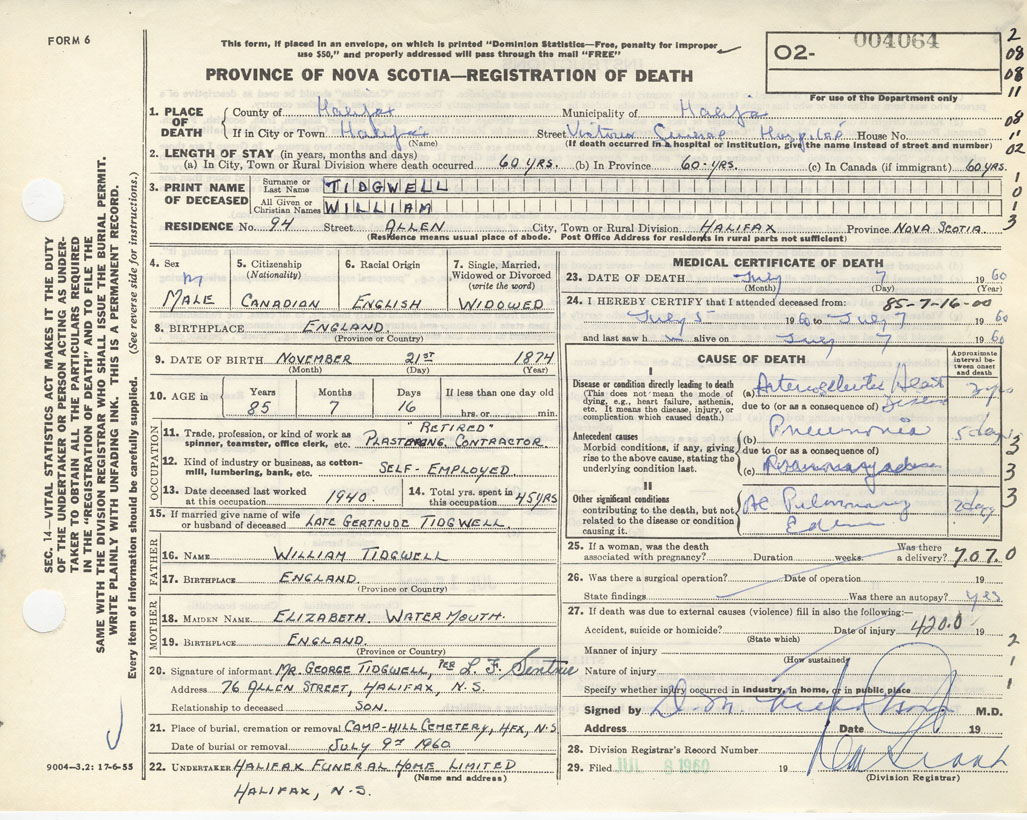 FORM 6
This form, if placed in an envelope, on which is printed "Dominion Statistics—Free, penalty for improper
use $50," and properly addressed will pass through the mail "FREE"
O2- 004064
For use of the Department only
2
08
08
11
08
11
02
1
0
1
3
PROVINCE OF NOVA SCOTIA—REGISTRATION OF DEATH
1. PLACE OF DEATH
County of Halifax Municipality of Halifax
If in City or Town Halifax Street Victoria General Hospital House No.
(Name) (If death occurred in a hospital or institution, give the name instead of street and number)
2. LENGTH OF STAY (in years, months and days)
(a) In City, Town or Rural Division where death occurred 60 YRS. (b) In Province 60 YRS. (c) In Canada (if immigrant) 60 YRS.
3. PRINT NAME OF DECEASED
Surname or Last Name TIDGWELL
All Given or Christian Names WILLIAM
RESIDENCE No. 94 Street ALLEN City, Town or Rural Division HALIFAX Province NOVA SCOTIA
(Residence means usual place of abode. Post Office Address for residents in rural parts not sufficient)
4. Sex M MALE
5. Citizenship (Nationality) CANADIAN
6. Racial Origin ENGLISH
7. Single, Married, Widowed or Divorced (write the word) WIDOWED
8. BIRTHPLACE ENGLAND.
(Province or Country)
9. DATE OF BIRTH NOVEMBER 21ST 1874
(Month) (Day) (Year)
10. AGE in Years 85 Months 7 Days 16 If less than one day
hrs. or min.
OCCUPATION
11. Trade, profession, or kind of work as spinner, teamster, office clerk, etc. "RETIRED" PLASTERING CONTRACTOR.
12. Kind of industry or business, as cotton-mill, lumbering, bank, etc. SELF-EMPLOYED
13. Date deceased last worked at this occupation 1940.
14. Total yrs. spent in this occupation 45 YRS
15. If married give name of wife or husband of deceased LATE GERTRUDE TIDGWELL.
FATHER
16. NAME WILLIAM TIDGWELL
17. BIRTHPLACE ENGLAND.
(Province or Country)
MOTHER
18. MAIDEN NAME ELIZABETH WATERMOUTH.
19. BIRTHPLACE ENGLAND.
(Province or Country)
20. Signature of informant MR. GEORGE TIDGWELL, PER L. F.
Address 76 ALLEN STREET, HALIFAX, N.S.
Relationship to deceased SON.
21. Place of burial, cremation or removal CAMP-HILL CEMETERY, HFX, N.S
Date of burial or removal JULY 9TH 1960
22. UNDERTAKER HALIFAX FUNERAL HOME LIMITED
(Name and address)
HALIFAX, N.S.
MEDICAL CERTIFICATE OF DEATH
23. DATE OF DEATH July 7 1960
(Month) (Day) (Year)
24. I HEREBY CERTIFY that I attended deceased from: 85-7-16-00
July 5 1960 to July 7 1960
and last saw h alive on July 7 1960
CAUSE OF DEATH
Approximate interval between onset and death
I
Disease or condition directly leading to death
(This does not mean the mode of dying, e.g., heart failure, asthenia, etc. It means the disease, injury, or complication which caused death.)
(a) Heart
due to (or as a consequence of)
Antecedent causes
Morbid conditions, if any, giving rise to the above cause, stating the underlying condition last.
(b) Pneumonia 5 days
due to (or as a consequence of)
(c)
II
Other significant conditions
contributing to the death, but not related to the disease or condition causing it.
Ac Pulmonary Edema
3
3
3
3
25. If a woman, was the death associated with pregnancy? Duration weeks. Was there a delivery? 7.070
26. Was there a surgical operation? Date of operation 19
State findings Was there an autopsy? yes
27. If death was due to external causes (violence) fill in also the following:—
Accident, suicide or homicide? Date of injury 420.0 19
(State which)
Manner of injury
(How sustained)
Nature of injury
Specify whether injury occurred in industry, in home, or in public place
2
1
1
Signed by M.D.
Address Date 19
28. Division Registrar's Record Number
29. Filed JUL 8 1960 19
(Division Registrar)
SEC. 14—VITAL STATISTICS ACT MAKES IT THE DUTY
OF THE UNDERTAKER OR PERSON ACTING AS UNDER-
TAKER TO OBTAIN ALL THE PARTICULARS REQUIRED
IN THE "REGISTRATION OF DEATH" AND TO FILE THE
SAME WITH THE DIVISION REGISTRAR WHO SHALL ISSUE THE BURIAL PERMIT.
WRITE PLAINLY WITH UNFADING INK. THIS IS A PERMANENT RECORD.
Every item of information should be carefully supplied. (See reverse side for instructions.)
9004-3.2: 17-6-55